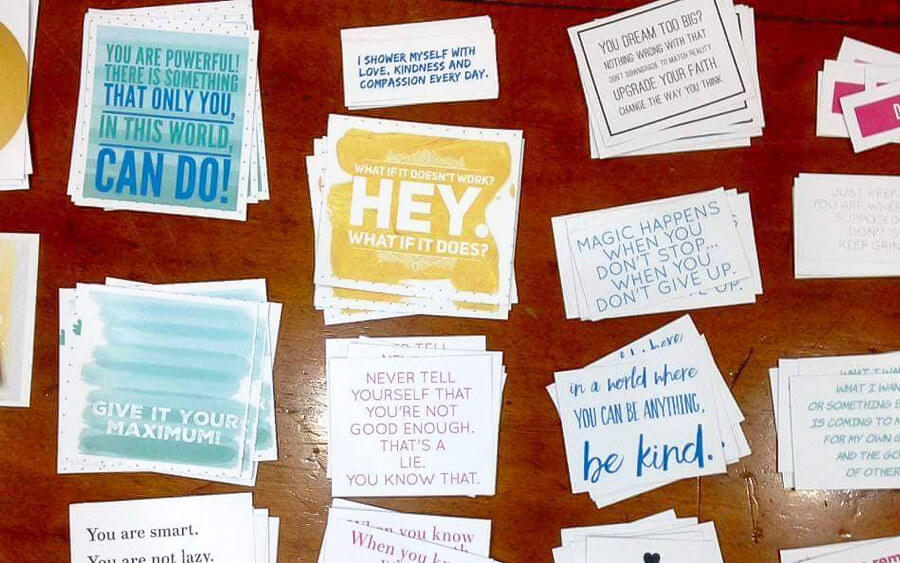 YOU ARE POWERFUL!
THERE IS SOMETHING
THAT ONLY YOU,
IN THIS WORLD,
CAN DO!
I SHOWER MYSELF WITH
LOVE, KINDNESS AND
COMPASSION EVERY DAY.
YOU DREAM TOO BIG?
NOTHING WRONG WITH THAT
DON'T DOWNGRADE TO MATCH REALITY
UPGRADE YOUR FAITH
CHANGE THE WAY YOU THINK.
WHAT IF IT DOESN'T WORK?
HEY.
WHAT IF IT DOES?
MAGIC HAPPENS
WHEN YOU
DON'T STOP...
WHEN YOU
DON'T GIVE UP.
VE UP.
JUST KEEP
YOU ARE WHER
SUPPOSED
DON'T S
KEEP GRIN
GIVE IT YOUR
MAXIMUM!
TELL
NEVER TELL
YOURSELF THAT
YOU'RE NOT
GOOD ENOUGH.
THAT'S A
LIE.
YOU KNOW THAT.
in a world where
YOU CAN BE ANYTHING,
be kind.
WHAT I WA
WHAT I WAN
OR SOMETHING B
IS COMING TO M
FOR MY OWN G
AND THE GO
OF OTHER
You are smart.
You are not lazy.
When you know
When you k